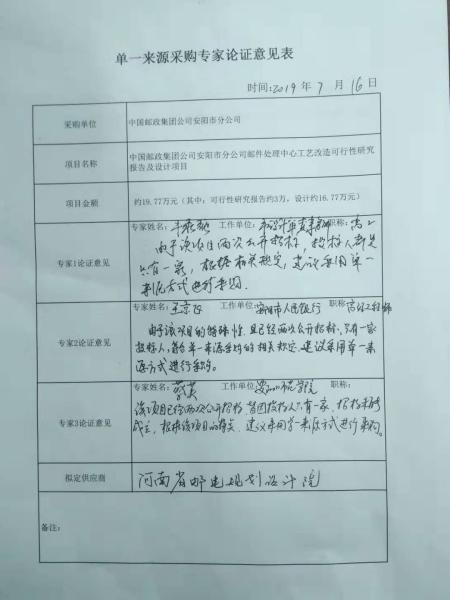 单一来源采购专家论证意见表
时间:2019年7月16日
采购单位 中国邮政集团公司安阳市分公司
项目名称 中国邮政集团公司安阳市分公司邮件处理中心工艺改造可行性研究
报告及设计项目
项目金额 约19.77万元（其中：可行性研究报告约3万，设计约16.77万元）
专家1论证意见
专家姓名: 工作单位: 职称: 高工
由于该项目两次公开招标，投标人都是
只有一家，根据有关规定，建议采用单一
来源方式进行采购.
专家2论证意见
专家姓名: 王京 工作单位: 安阳市人民银行 职称: 高级工程师
由于该项目的特殊性，且已经两次公开招标，只有一家
投标人，符合单一来源采购的相关规定，建议采用单一来
源方式进行采购。
专家3论证意见
专家姓名: 工作单位: 学院 职称:
该项目已经两次公开招标，皆因投标人只有一家，招标未能
成立，根据该项目的特点，建议采用单一来源方式进行采购。
拟定供应商 河南省邮电规划设计院
备注: